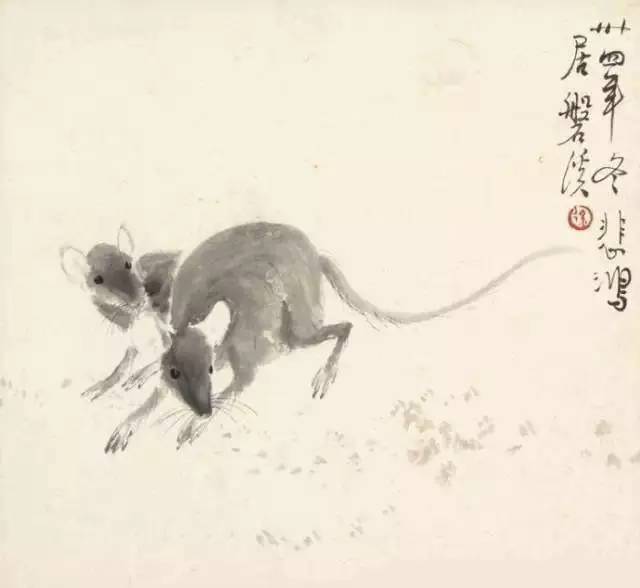 卅四年冬 悲鸿
居磐溪